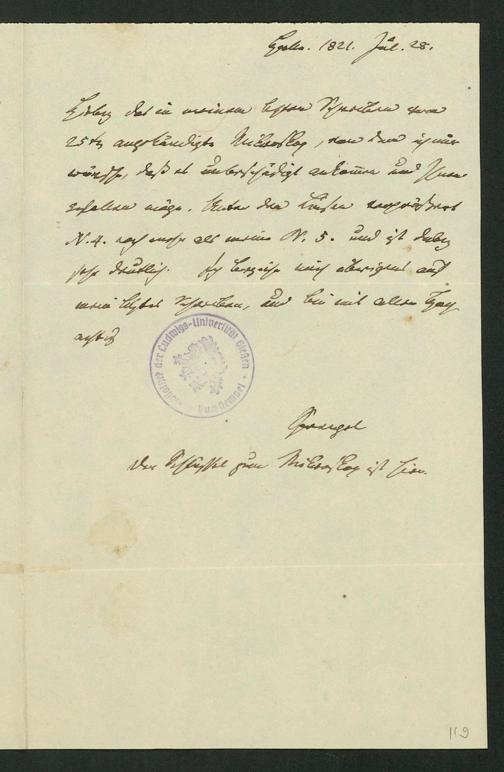 Halle. 1821. Jul. 28.
Hiebey das in meinem letzten Schreiben vom
25ten angekündigte Mikroskop, von dem ich nur
wünsche, daß es unbeschädigt ankomme und Ihnen
gefallen möge. Unter den Linsen vergrössert
N. 4. noch mehr als meine N. 5. und ist dabey
sehr deutlich. Ich beziehe mich übrigens auf
mein letztes Schreiben, und bin mit aller Hoch
achtung
der Ludwigs-Universität Gießen
Sprengel
Der Schlüssel zum Mikroskop ist hier.
119